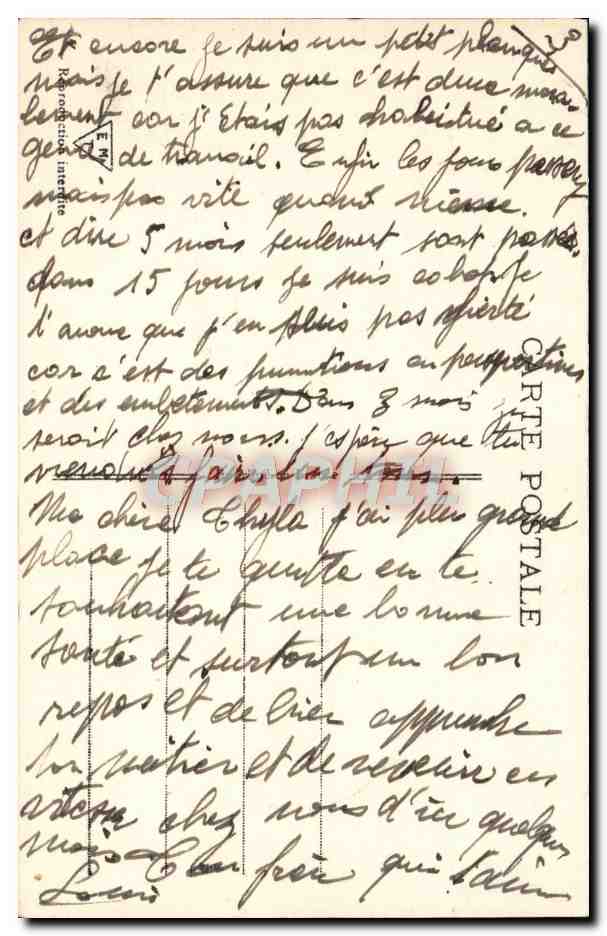 Et encore je suis un petit planqué
mais je t'assure que c'est dure mora
lement car j'étais pas habitué a ce
genre de travail. Enfin les jours passent
mais pas vite quand même.
et dire 5 mois seulement sont passés.
dans 15 jours je suis
t'avoue que j'en suis pas fierté
car c'est des punitions en perspectives
et des embetements. Dans 3 mois je
serait chez nous. j'espère que tu
viendras faire un tour.
Ma chère j'ai plus grand
place je te quitte en te
souhaitant une bonne
santé et surtout un bon
repos et de bien apprendre
ton métier et de revenir en
chez nous d'ici quelques
mois Ton frère qui t'aime
Louis
3
CARTE POSTALE
Reproduction interdite
EM
CPAPHIL